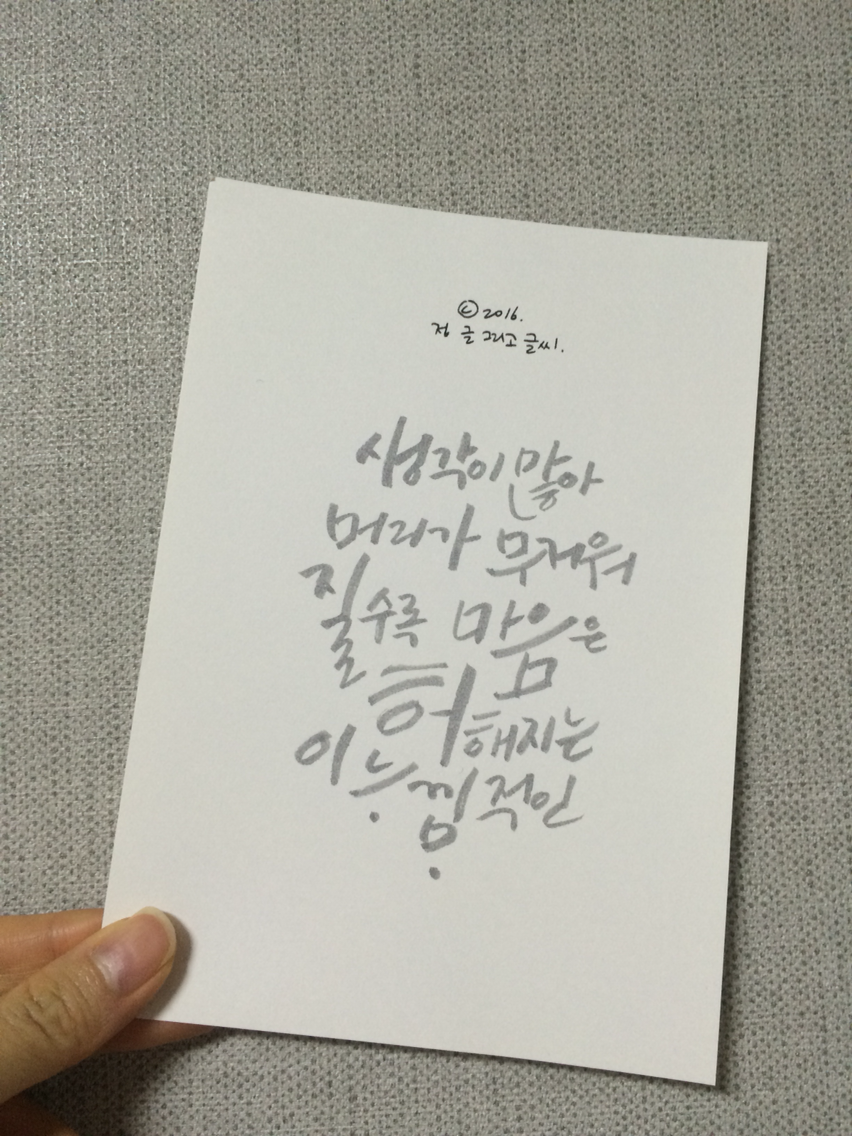 ⓒ 2016.
정 글 그리고 글씨.
생각이 많아
머리가 무거워
질수록 마음은
허해지는
이 느.낌.적인